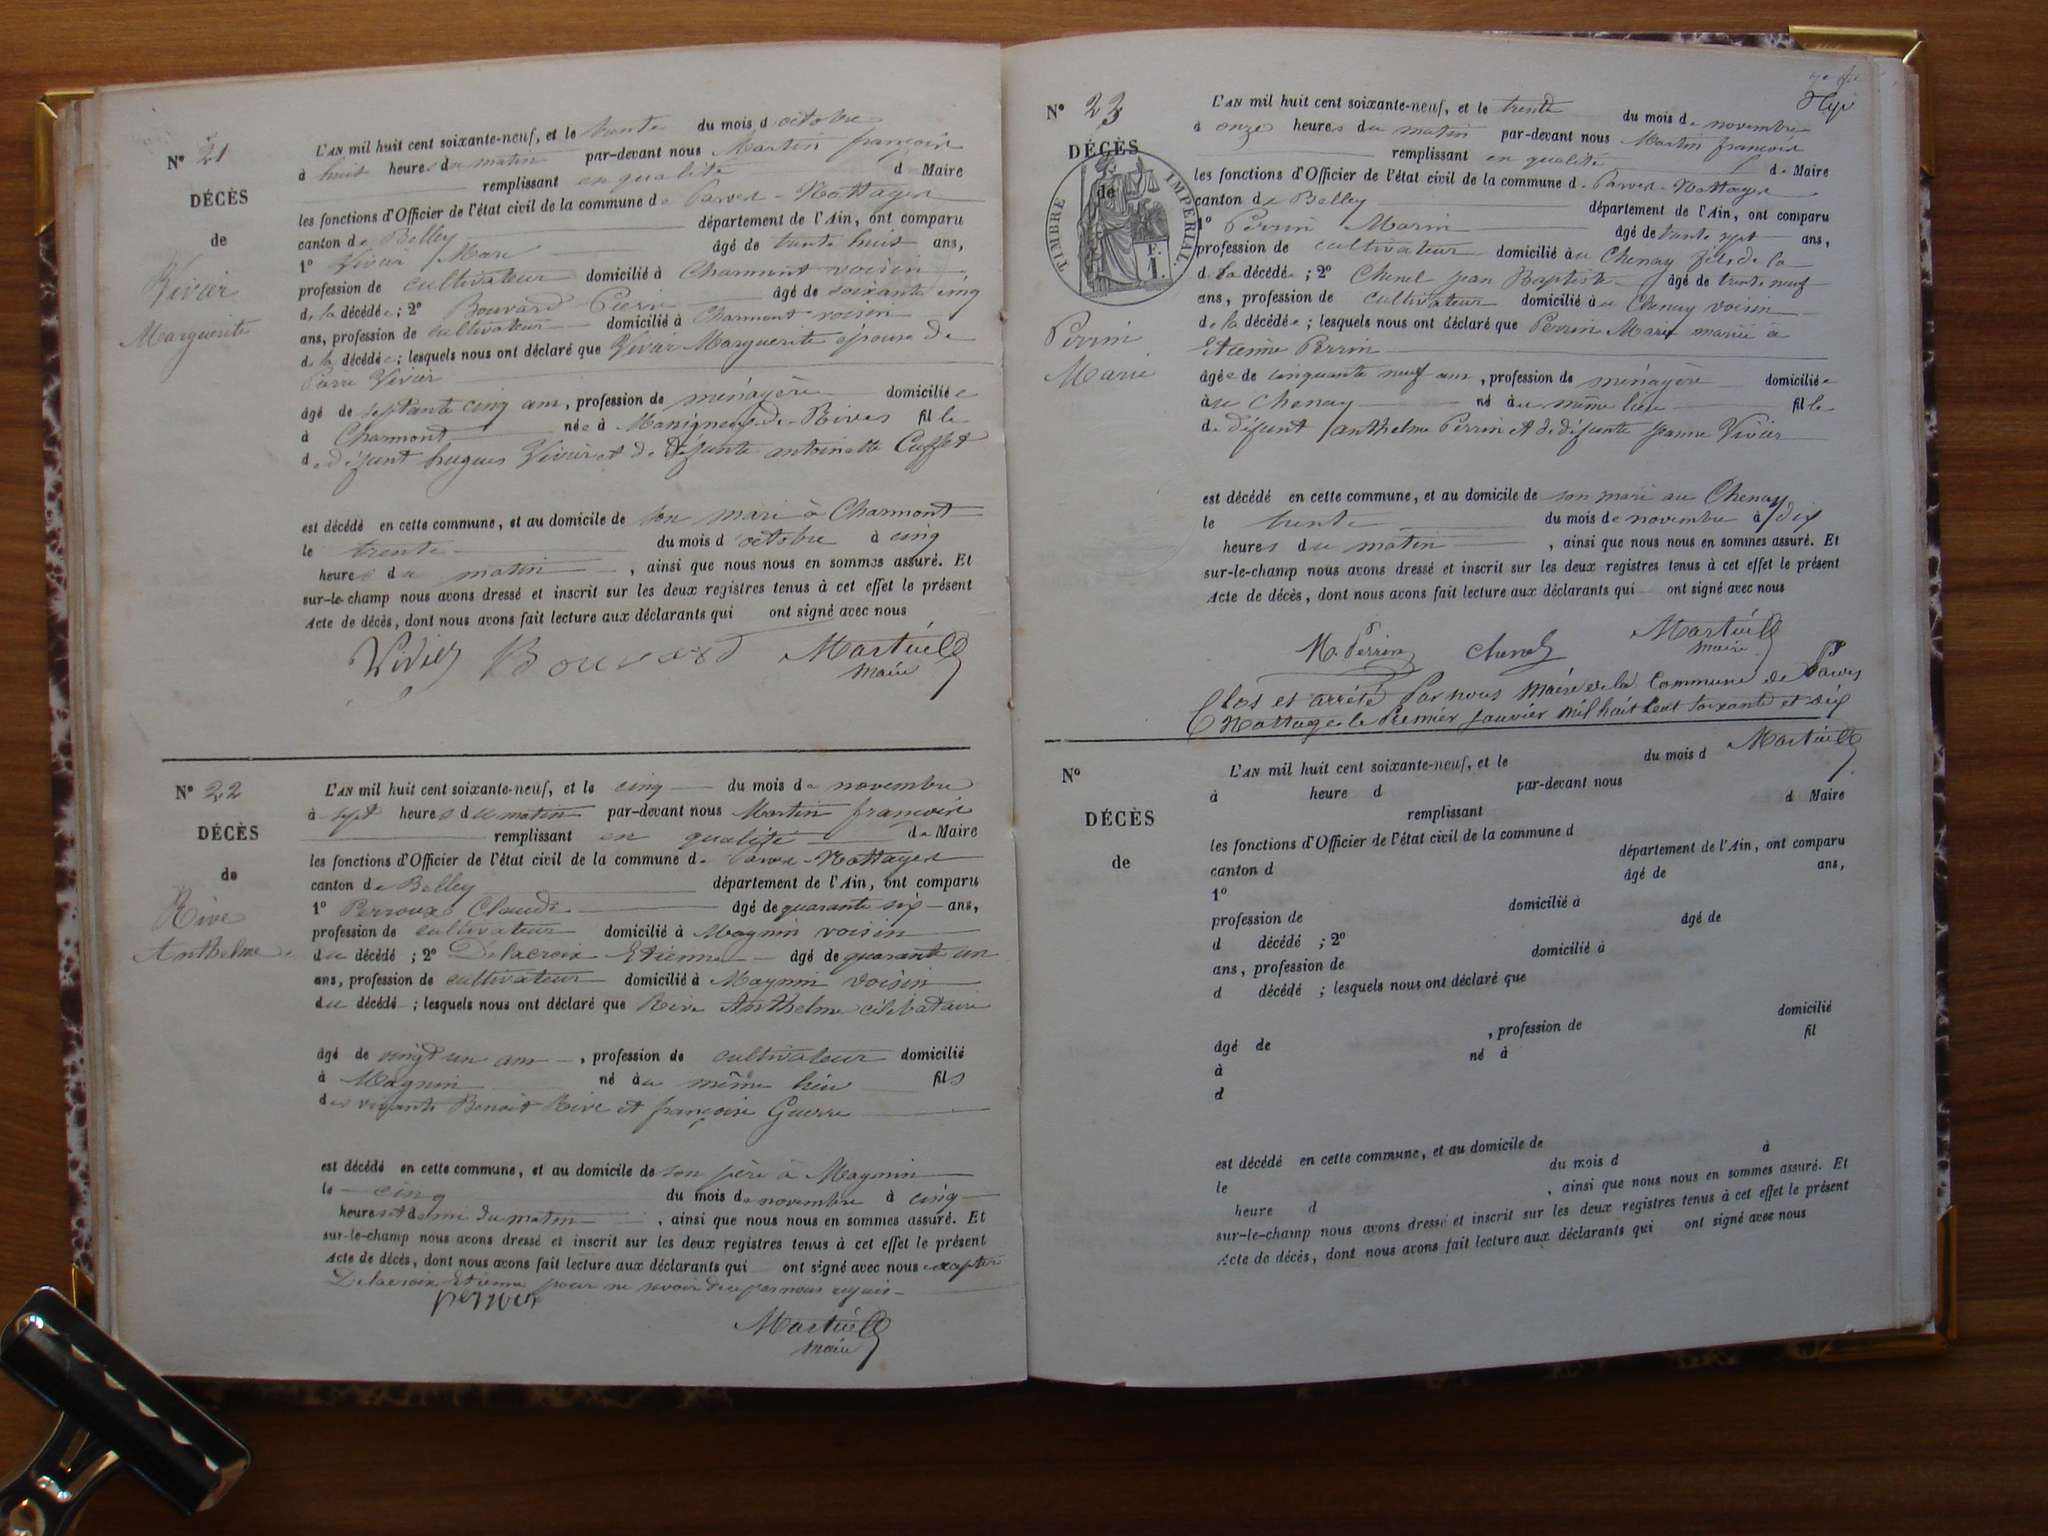 N° 21
DÉCÈS
de
Vivier
Marguerite
L'AN mil huit cent soixante-neuf, et le trente du mois d octobre
à huit heures du matin par-devant nous Martin françois
remplissant en qualité de Maire
les fonctions d'Officier de l'état civil de la commune de Parves-Nattages
canton de Belley département de l'Ain, ont comparu
1° Vivier Marc âgé de trente huit ans,
profession de cultivateur domicilié à Charmont voisin
de la décédée ; 2° Bouvard Pierre âgé de soixante cinq
ans, profession de cultivateur domicilié à Charmont voisin
de la décédée ; lesquels nous ont déclaré que Vivier Marguerite épouse de
Pierre Vivier
âgé de septante cinq ans, profession de ménagère domiciliée
à Charmont née à Massigneux-de-Rives fille
de défunt hugues Vivier et de défunte antoinette
est décédé en cette commune, et au domicile de son mari à Charmont
le trente du mois d'octobre à cinq
heures du matin, ainsi que nous nous en sommes assuré. Et
sur-le-champ nous avons dressé et inscrit sur les deux registres tenus à cet effet le présent
Acte de décès, dont nous avons fait lecture aux déclarants qui ont signé avec nous
Vivier Bouvard Martin
maire
N° 22
DÉCÈS
de
Rive
Anthelme
L'AN mil huit cent soixante-neuf, et le cinq du mois de novembre
à sept heures du matin par-devant nous Martin françois
remplissant en qualité de Maire
les fonctions d'Officier de l'état civil de la commune de Parves-Nattages
canton de Belley département de l'Ain, ont comparu
1° Perroux Claude âgé de quarante six ans,
profession de cultivateur domicilié à Magnin voisin
du décédé ; 2° Delacroix Etienne âgé de quarant un
ans, profession de cultivateur domicilié à Magnin voisin
du décédé ; lesquels nous ont déclaré que Rive Anthelme célibataire
âgé de vingt un ans, profession de cultivateur domicilié
à Magnin né au même lieu fils
des vivants Benoit Rive et françoise Guerre
est décédé en cette commune, et au domicile de son père à Magnin
le cinq du mois de novembre à cinq
heures et demie du matin, ainsi que nous nous en sommes assuré. Et
sur-le-champ nous avons dressé et inscrit sur les deux registres tenus à cet effet le présent
Acte de décès, dont nous avons fait lecture aux déclarants qui ont signé avec nous excepter
Delacroix Etienne pour ne savoir de ce par nous requis
perroux
Martin
maire
N° 23
DÉCÈS
de
TIMBRE IMPÉRIAL
F.
1.
Perrin
Marie
L'AN mil huit cent soixante-neuf, et le trente du mois de novembre
à onze heures du matin par-devant nous Martin francois
remplissant en qualité de Maire
les fonctions d'Officier de l'état civil de la commune de Parves-Nattages
canton de Belley département de l'Ain, ont comparu
1° Perrin Marin âgé de trente sept ans,
profession de cultivateur domicilié au Chenay fils de la
de la décédée ; 2° Chenel jean Baptiste âgé de trente neuf
ans, profession de cultivateur domicilié au Chenay voisin
de la décédée ; lesquels nous ont déclaré que Perrin Marie mariée à
Etienne Perrin
âgée de cinquante neuf ans, profession de ménagère domiciliée
au Chenay né au même lieu fille
de défunt anthelme Perrin et de défunte jeanne Vivier
est décédé en cette commune, et au domicile de son mari au Chenay
le trente du mois de novembre à dix
heures du matin, ainsi que nous nous en sommes assuré. Et
sur-le-champ nous avons dressé et inscrit sur les deux registres tenus à cet effet le présent
Acte de décès, dont nous avons fait lecture aux déclarants qui ont signé avec nous
M. Perrin Chenel Martin
maire
Clos et arrêté Par nous Maire de la Commune de Parves
Nattages le Premier janvier Mil huit Cent soixante et dix
Martin
N°
DÉCÈS
de
L'AN mil huit cent soixante-neuf, et le du mois d
à heure d par-devant nous
remplissant d Maire
les fonctions d'Officier de l'état civil de la commune d
canton d département de l'Ain, ont comparu
1° âgé de ans,
profession de domicilié à
d décédé ; 2° âgé de
ans, profession de domicilié à
d décédé ; lesquels nous ont déclaré que
âgé de , profession de domicilié
à né à fil
d
est décédé en cette commune, et au domicile de
le du mois d à
heure d , ainsi que nous nous en sommes assuré. Et
sur-le-champ nous avons dressé et inscrit sur les deux registres tenus à cet effet le présent
Acte de décès, dont nous avons fait lecture aux déclarants qui ont signé avec nous